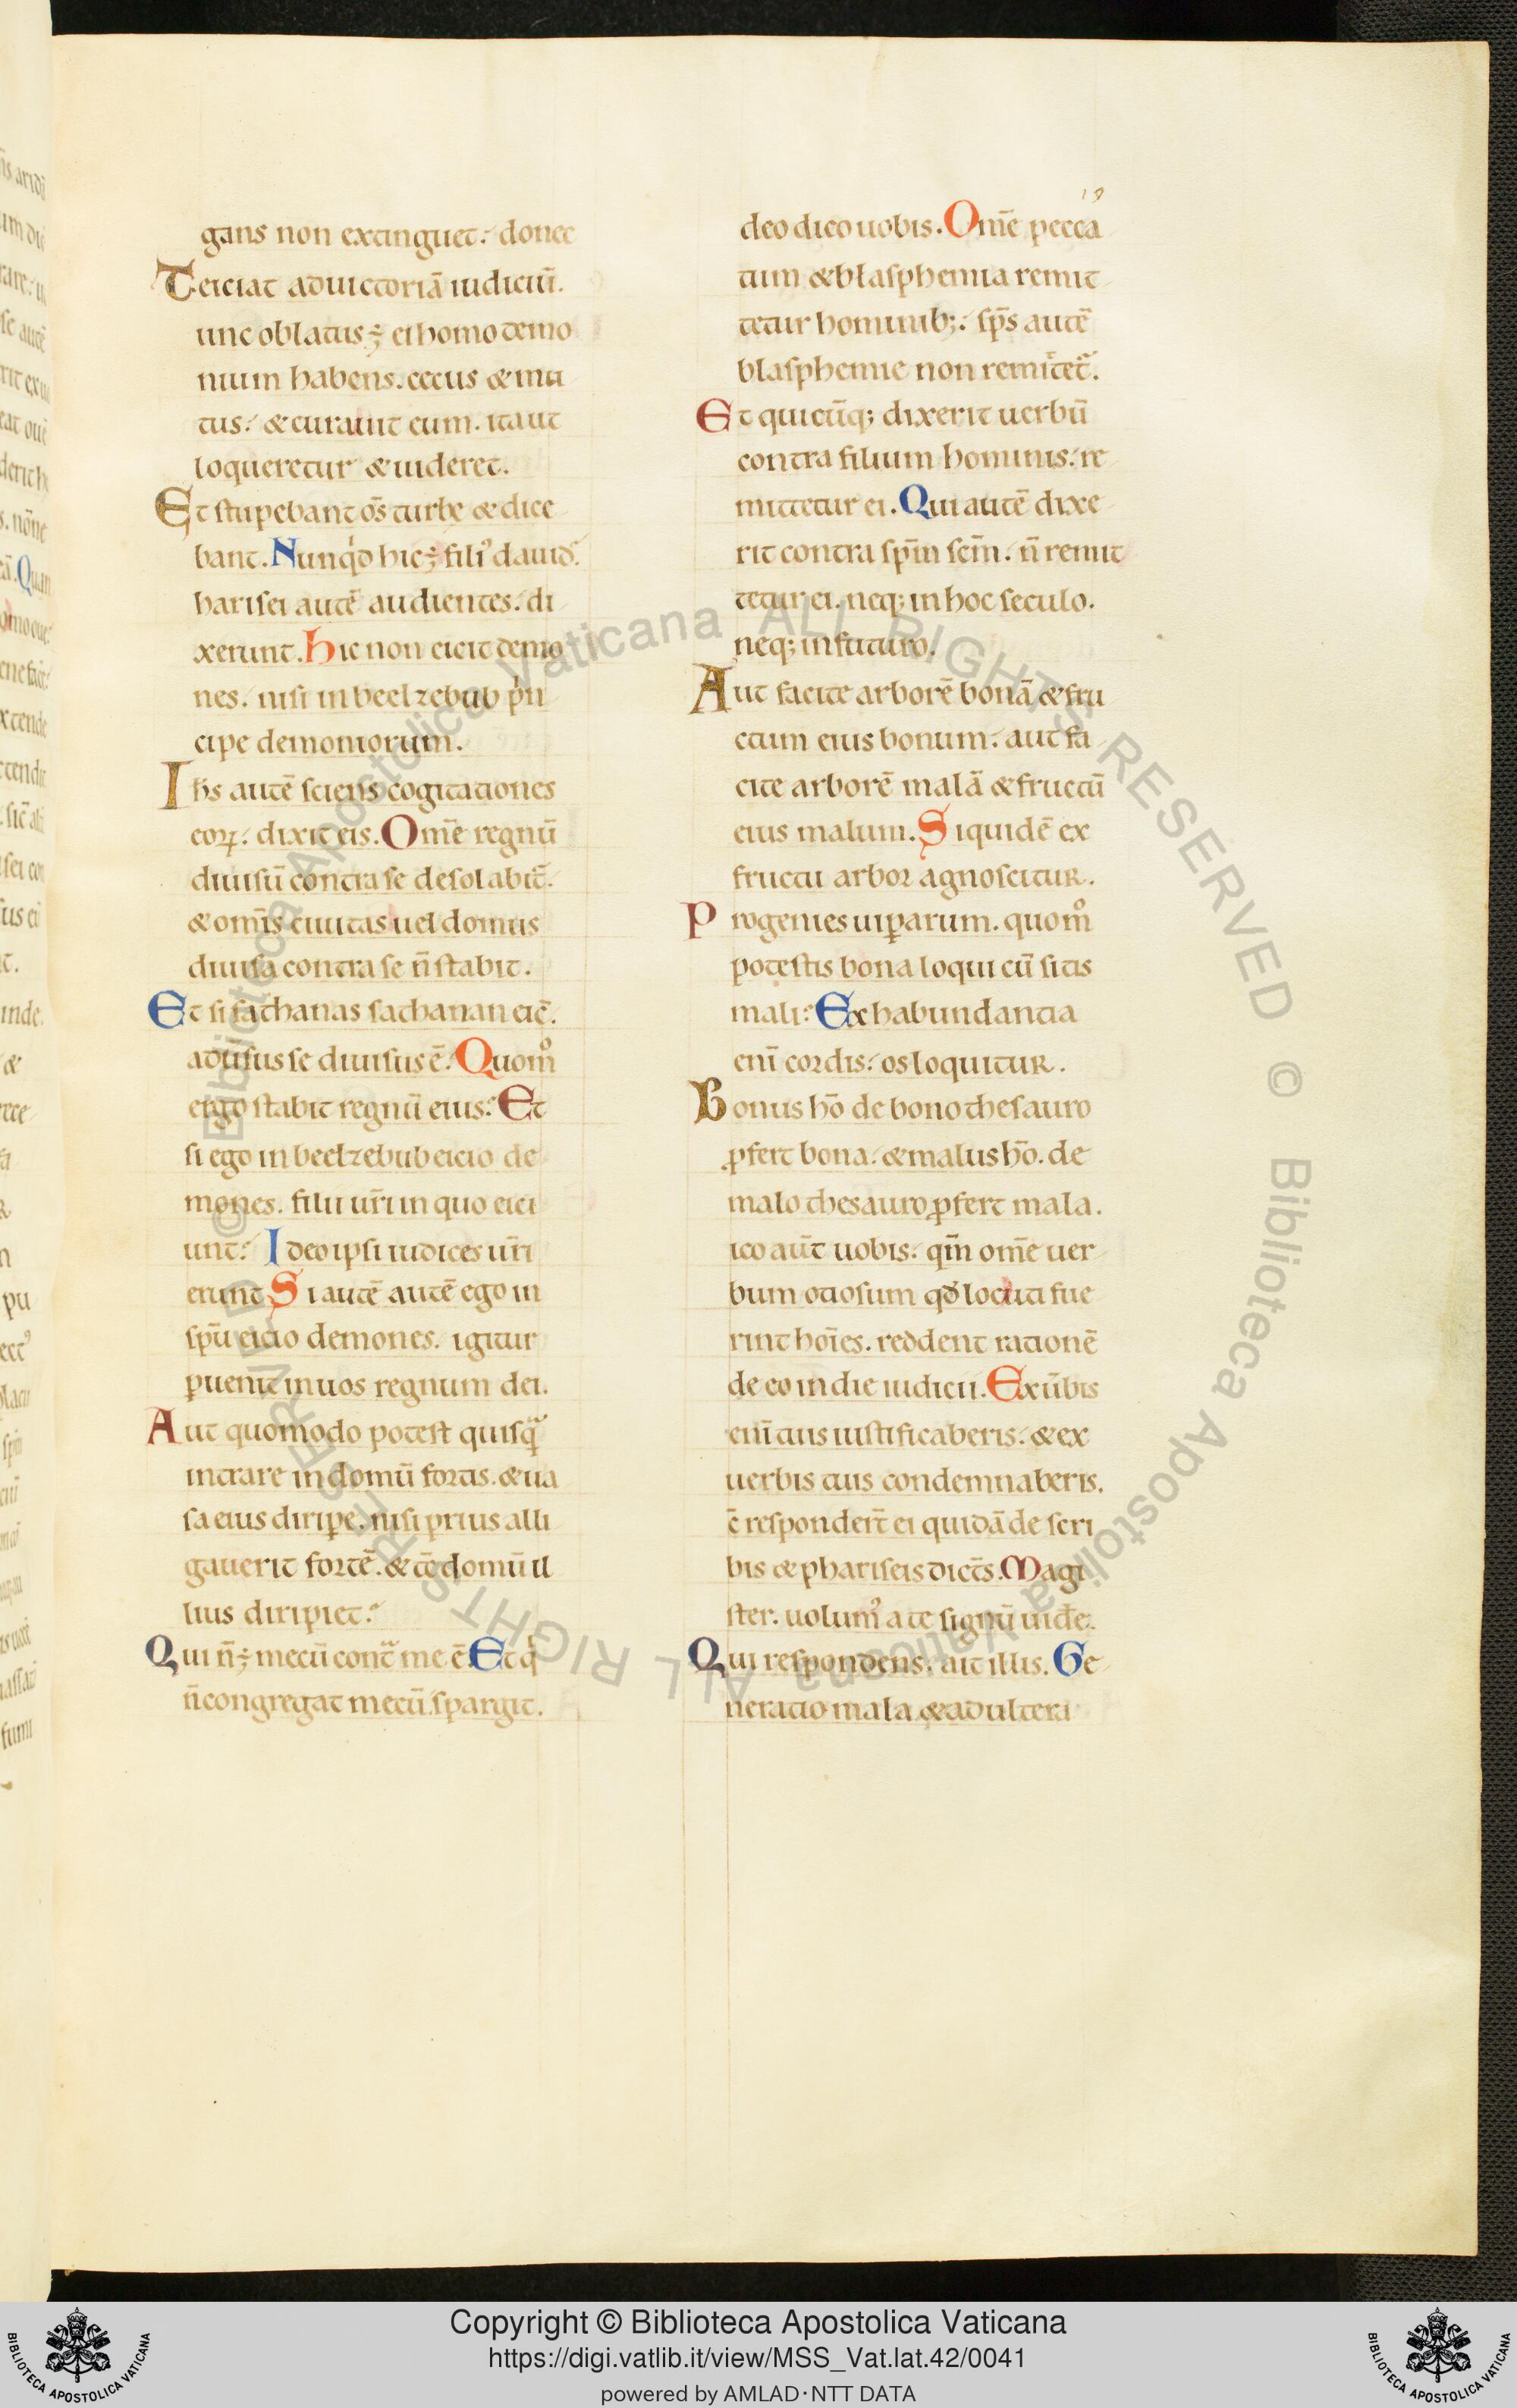 19
gans non extinguet. donec
eiciat ad uictoriā iudiciū.
Tunc oblatus ÷ ei homo demo
nium habens. cecus & mu
tus. & curauit eum. ita ut
loqueretur & uideret.
Et stupebant oms̄ turbe & dice
bant. Nunqͥd hic ÷ filiꝰ dauid.
harisei autē audientes. di
xerunt. Hic non eicit demo
nes. nisi in beelzebub pͥn
cipe demoniorum.
Ihs̄ autē sciens cogitationes
eoꝝ. dixit eis. Om̄e regnū
diuisū contra se desolabit᷑.
& omīs ciuitas uel domus
diuisa contra se n̄ stabit.
Et si sathanas sathanan eic̄.
aduꝰsus se diuisus ē. Quom̊
ergo stabit regnū eius. Et
si ego in beelzebub eicio de
mones. filii ur̄i in quo eici
unt. Ideo ipsi iudices ur̄i
erunt Si autē autē ego in
spū eicio demones. igitur
ꝑuenit in uos regnum dei.
Aut quomodo potest quisqᷓ
intrare in domū fortis. & ua
sa eius diriꝑe. nisi prius alli
gauerit fortē. & tc̄ domū il
lius diripiet.
Qui n̄ ÷ mecū contᷓ me ē. Et qͥ
n̄ congregat mecū. spargit.
deo dico uobis. Om̄e pecca
tum & blasphemia remit
tetur hominib;. sps̄ autē
blasphemie non remittet᷑.
Et quicūq; dixerit uerbū
contra filium hominis. re
mittetur ei. Qui autē dixe
rit contra spm̄ scm̄. n̄ remit
tetur ei. neq; in hoc seculo.
neq; in futuro.
Aut facite arborē bonā & fru
ctum eius bonum. aut fa
cite arborē malā & fructū
eius malum. Siquidē ex
fructu arbor agnoscitur.
Progenies uiꝑarum. quom̊
potestis bona loqui cū sitis
mali. Ex habundantia
enī cordis. os loquitur.
Bonus hō de bono thesauro
ꝓfert bona. & malus hō. de
malo thesauro ꝓfert mala.
ico aut̄ uobis. qm̄ om̄e uer
bum otiosum qđ locuti fue
rint hoīes. reddent rationē
de eo in die iudicii. Ex ūbis
enī tuis iustificaberis. & ex
uerbis tuis condemnaberis.
c̄ responder̄t ei quidā de scri
bis & phariseis dict̄s. Magi
ster. uolumꝰ a te signū uide.
Qui respondens. ait illis. Ge
neratio mala & adultera
Copyright © Biblioteca Apostolica Vaticana
https://digi.vatlib.it/view/MSS_Vat.lat.42/0041
powered by AMLAD·NTT DATA